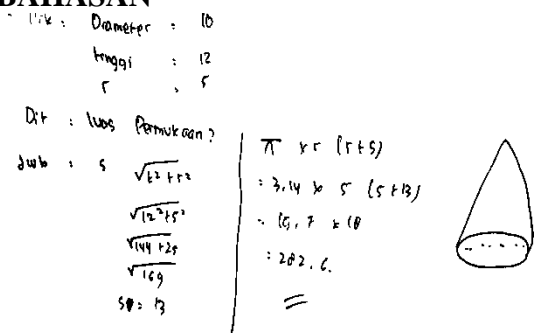 BAHASAN
Dik : Diameter : 10
tinggi : 12
r : 5
Dit : luas Permukaan?
Jwb : s √t² + r²
√12² + 5²
√144 + 25
√169
s = 13
π × r (r + s)
: 3,14 × 5 (5 + 13)
: 15,7 × 18
: 282,6.